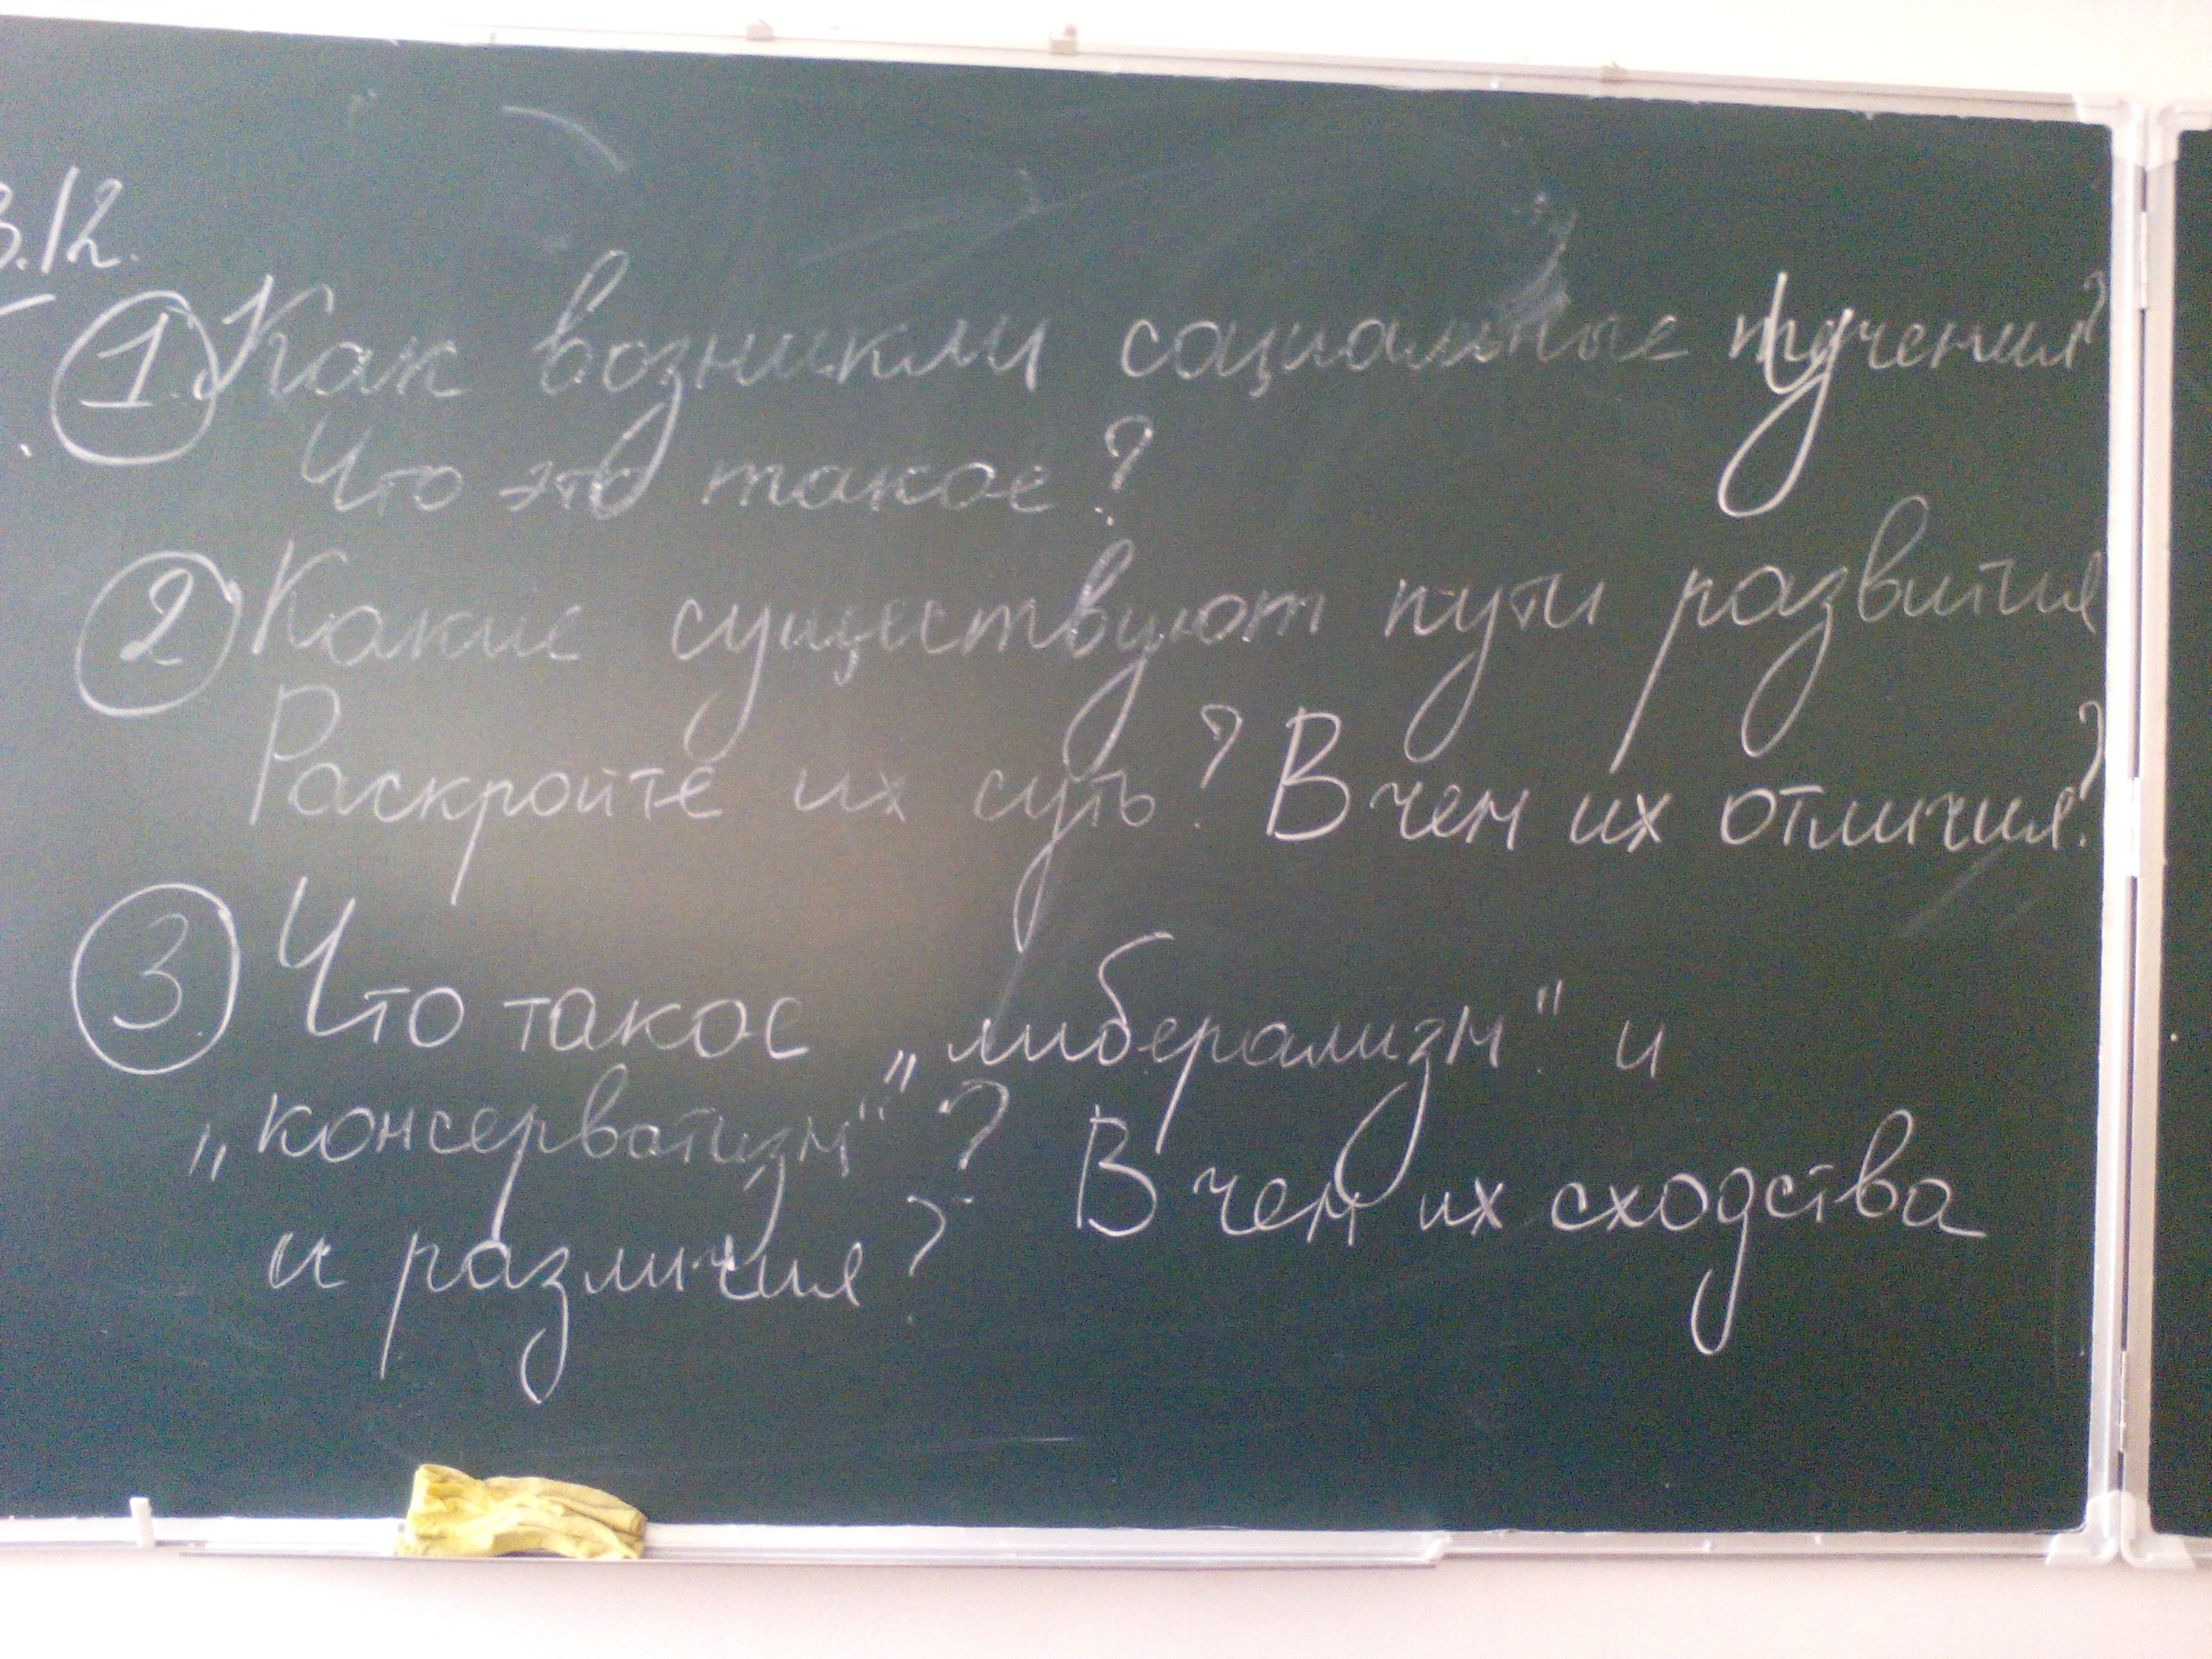 3.12.
1. Как возникли социальные учения?
Что это такое?
2 Какие существуют пути развития
Раскройте их суть? В чем их отличия?
3. Что такое „либерализм" и
„консерватизм"? В чем их сходства
и различия?